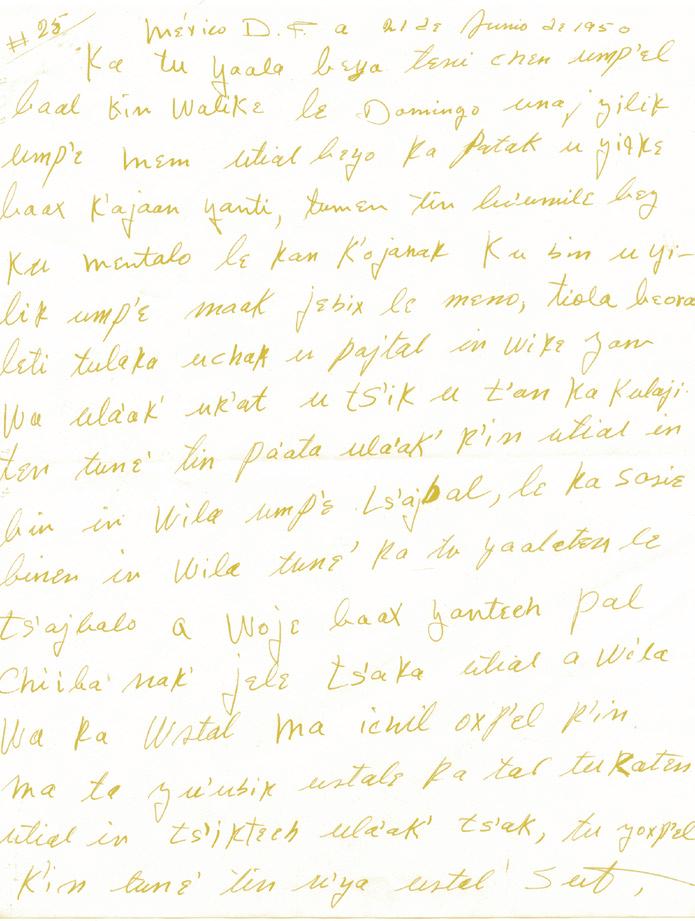 #25
México D.F. a 21 de Junio de 1950
Ka tu yaala beya teni chen ump'el
baal kin walike le Domingo unaj yilik
ump'e mem utial beyo ka patak u yilke
baax k'ajaan yanti, tumen tin lu'umile bey
ku mentalo le kan k'ojanak ku bin u yi-
lik ump'e maak jebix le meno, tiola beora
leti tulaka uchak u pajtal in wike yan
wa ulaak' uk'at u ts'ik u t'an ka kulaji
ten tune' tin páata ulaak' k'in utial in
bin in wila ump'e ts'ajbal, le ka sasie
binen in wila tune' ka tu yaalaten le
ts'ajbalo a woje baax yantech pal
chiiba nak' jele ts'aka utial a wila
wa ka wstal ma ichil oxp'el k'in
ma ta yu'ubik ustale ka tal tukaten
utial in ts'iktech ulaak' ts'ak, tu yoxp'el
k'in tune' tin u'ya ustal Sut,